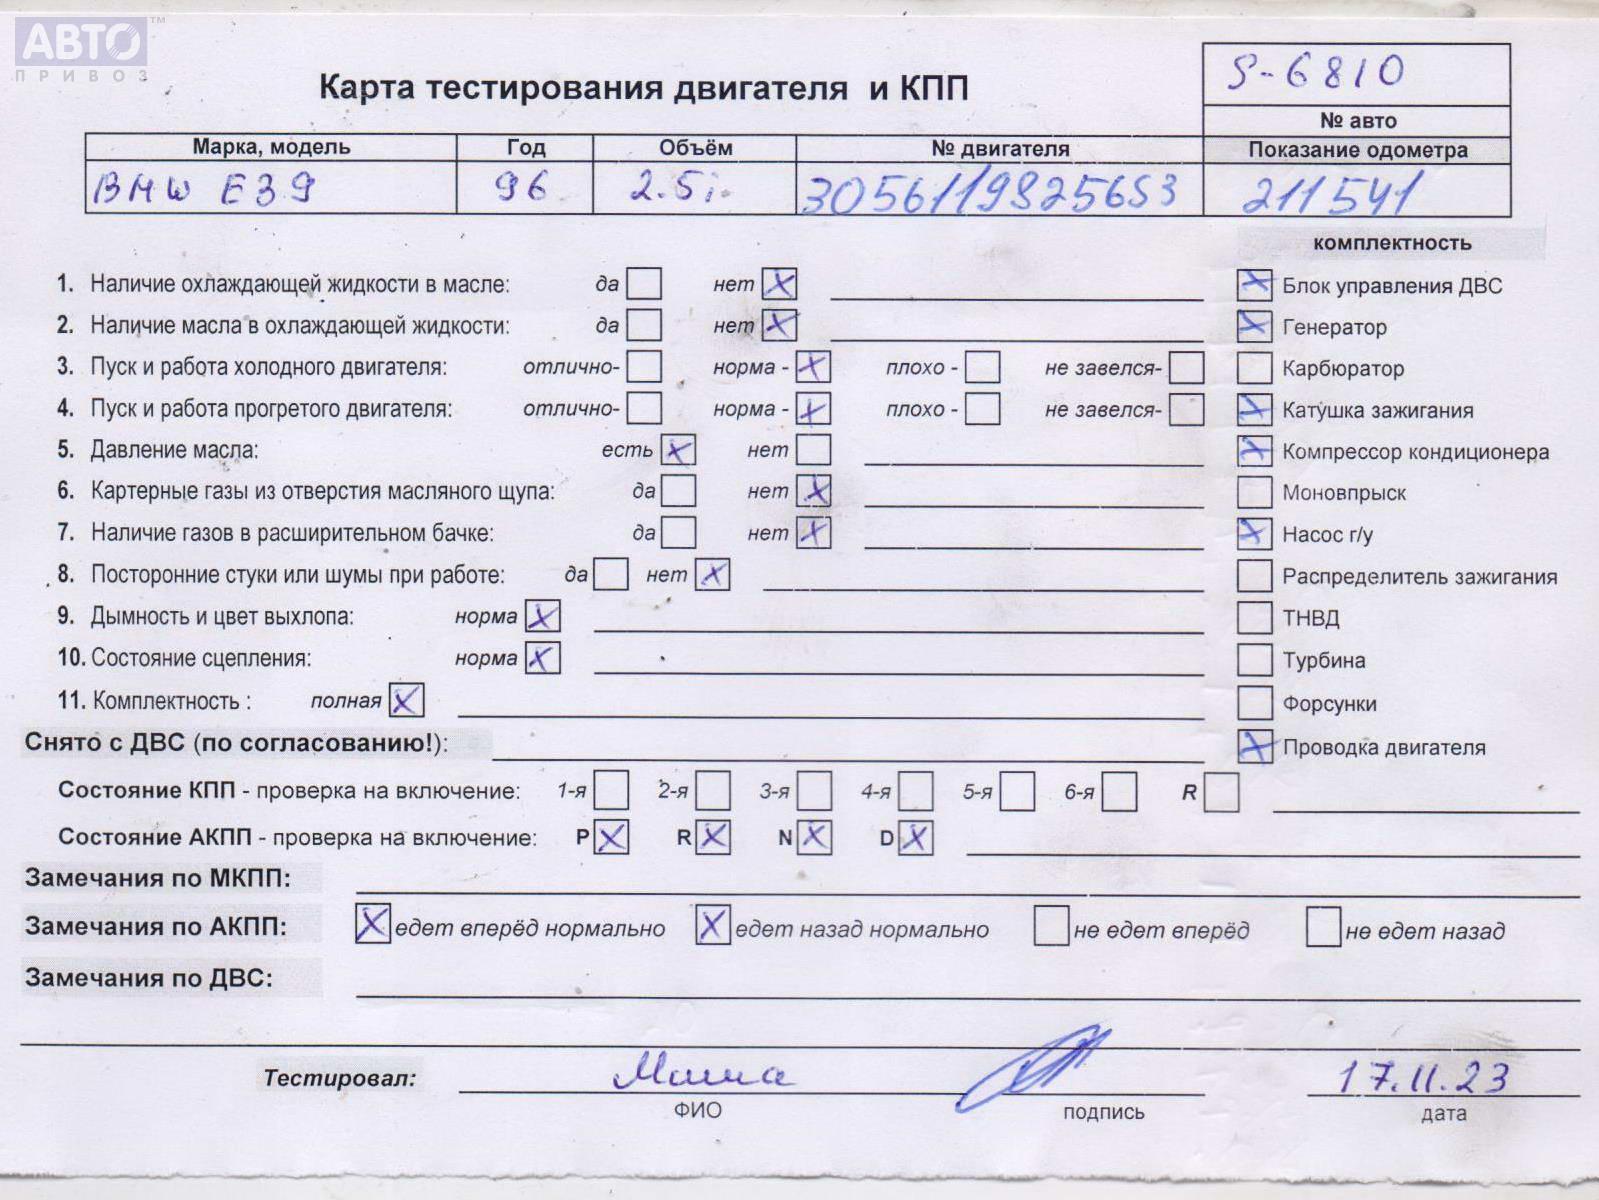 АВТО™
ПРИВОЗ
Карта тестирования двигателя и КПП
S-6810
№ авто
Марка, модель Год Объём № двигателя Показание одометра
BMW E39 96 2.5i 30561198256S3 211541
комплектность
1. Наличие охлаждающей жидкости в масле: да нет X
X Блок управления ДВС
2. Наличие масла в охлаждающей жидкости: да нет X
X Генератор
3. Пуск и работа холодного двигателя: отлично- норма - X плохо - не завелся-
Карбюратор
4. Пуск и работа прогретого двигателя: отлично- норма - X плохо - не завелся-
X Катушка зажигания
5. Давление масла: есть X нет
X Компрессор кондиционера
6. Картерные газы из отверстия масляного щупа: да нет X
Моновпрыск
7. Наличие газов в расширительном бачке: да нет X
X Насос г/у
8. Посторонние стуки или шумы при работе: да нет X
Распределитель зажигания
9. Дымность и цвет выхлопа: норма X
ТНВД
10. Состояние сцепления: норма X
Турбина
11. Комплектность : полная X
Форсунки
Снято с ДВС (по согласованию!):
X Проводка двигателя
Состояние КПП - проверка на включение: 1-я 2-я 3-я 4-я 5-я 6-я R
Состояние АКПП - проверка на включение: P X R X N X D X
Замечания по МКПП:
Замечания по АКПП: X едет вперёд нормально X едет назад нормально не едет вперёд не едет назад
Замечания по ДВС:
Тестировал: Маша 17.11.23
ФИО подпись дата